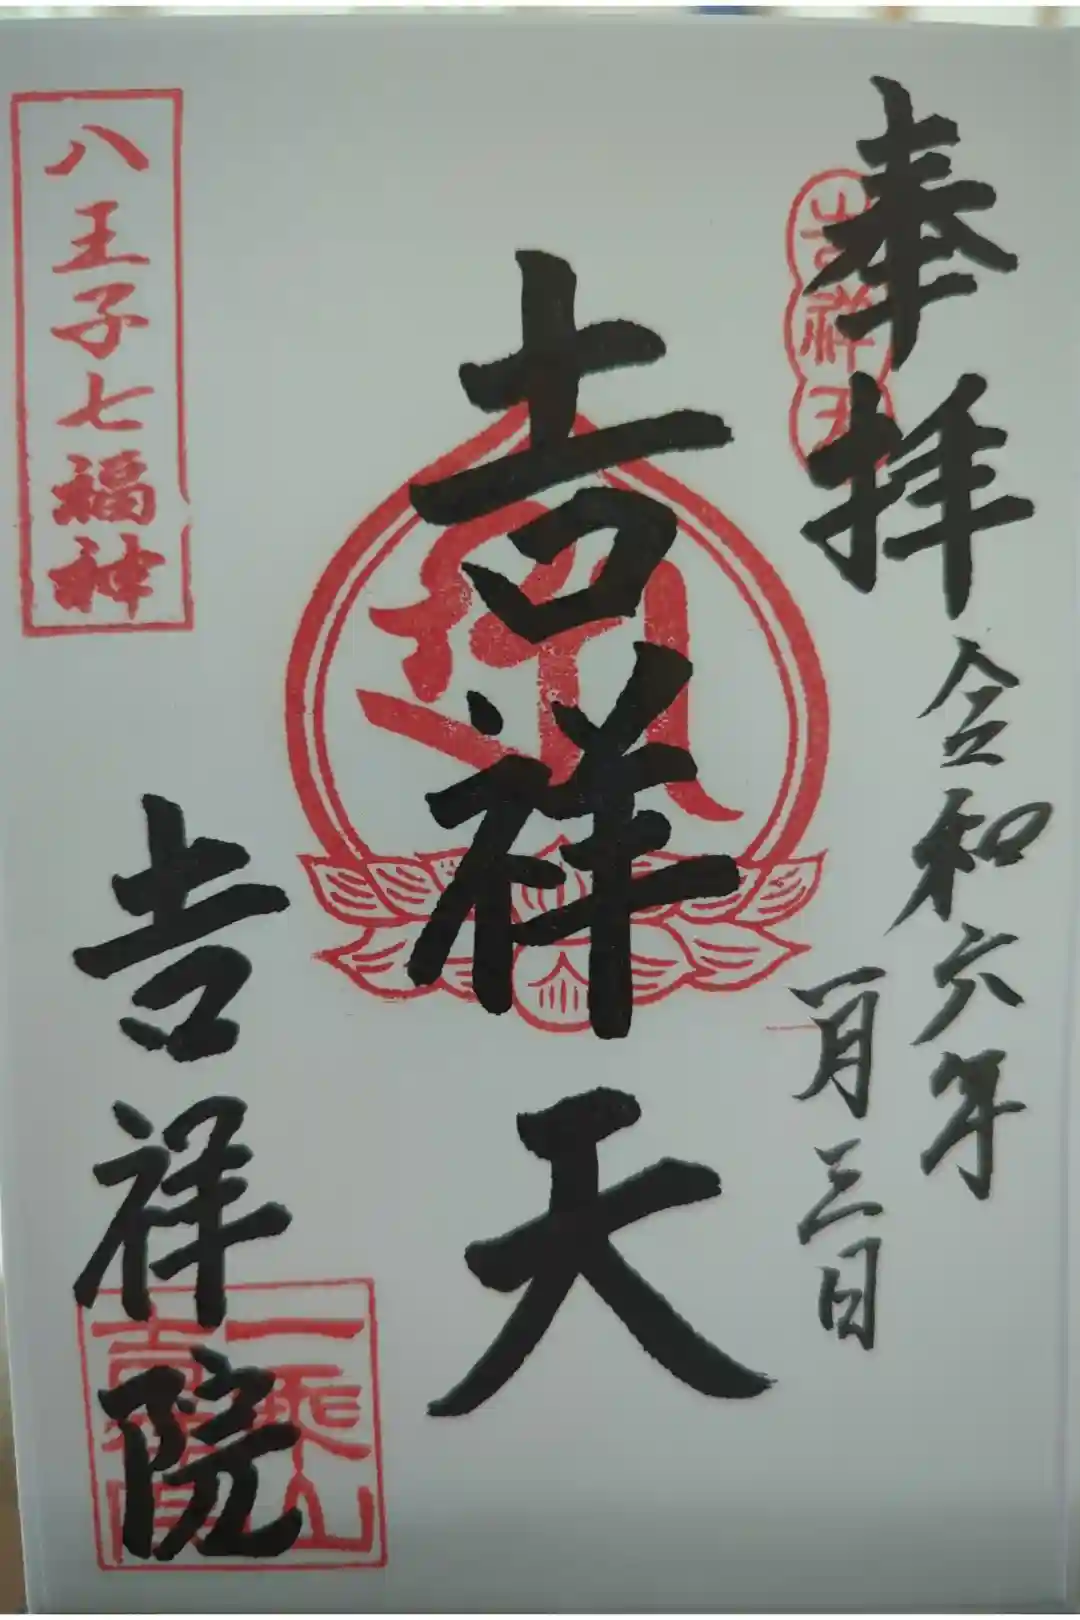 奉拝
令和六年
一月三日
吉祥天
吉祥天
八王子七福神
吉祥院
一乘山